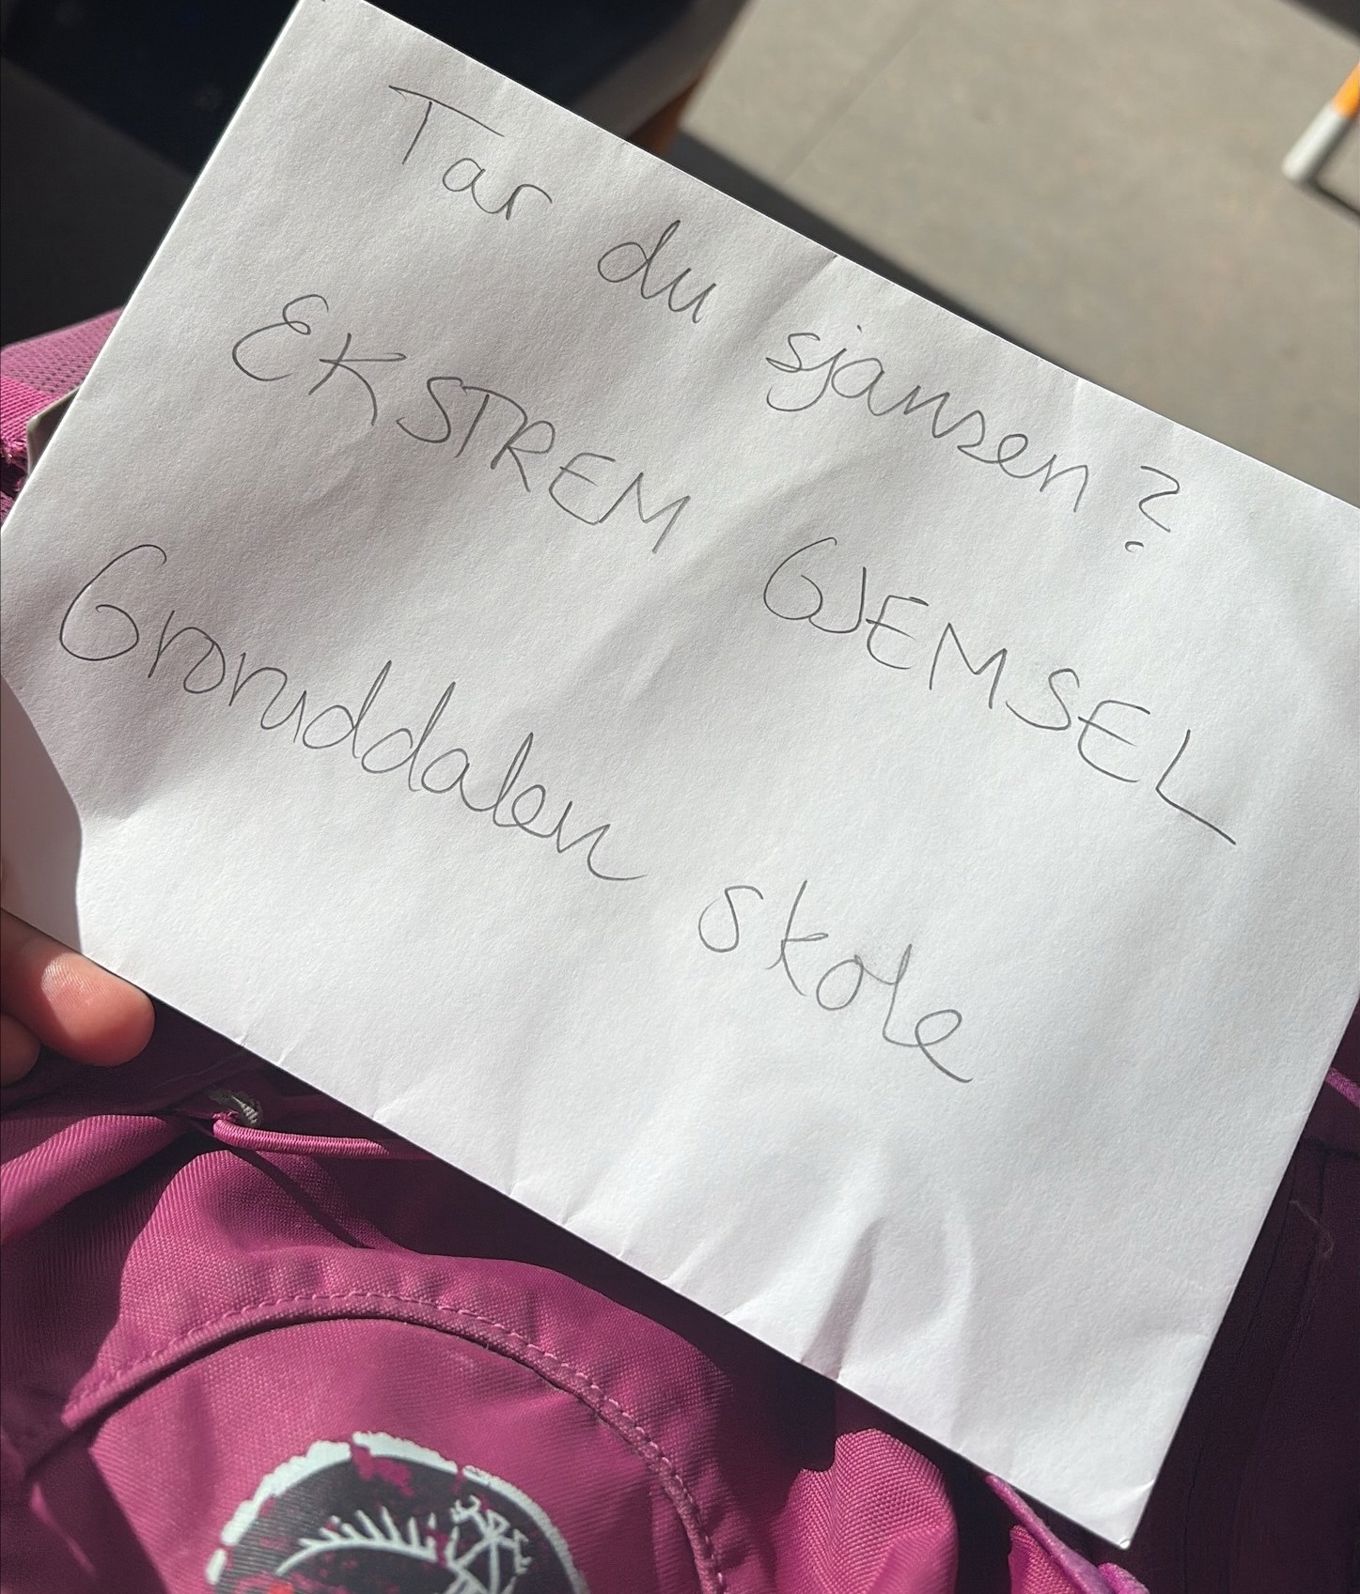 Tar du sjansen?
EKSTREM GJEMSEL
Groruddalen skole